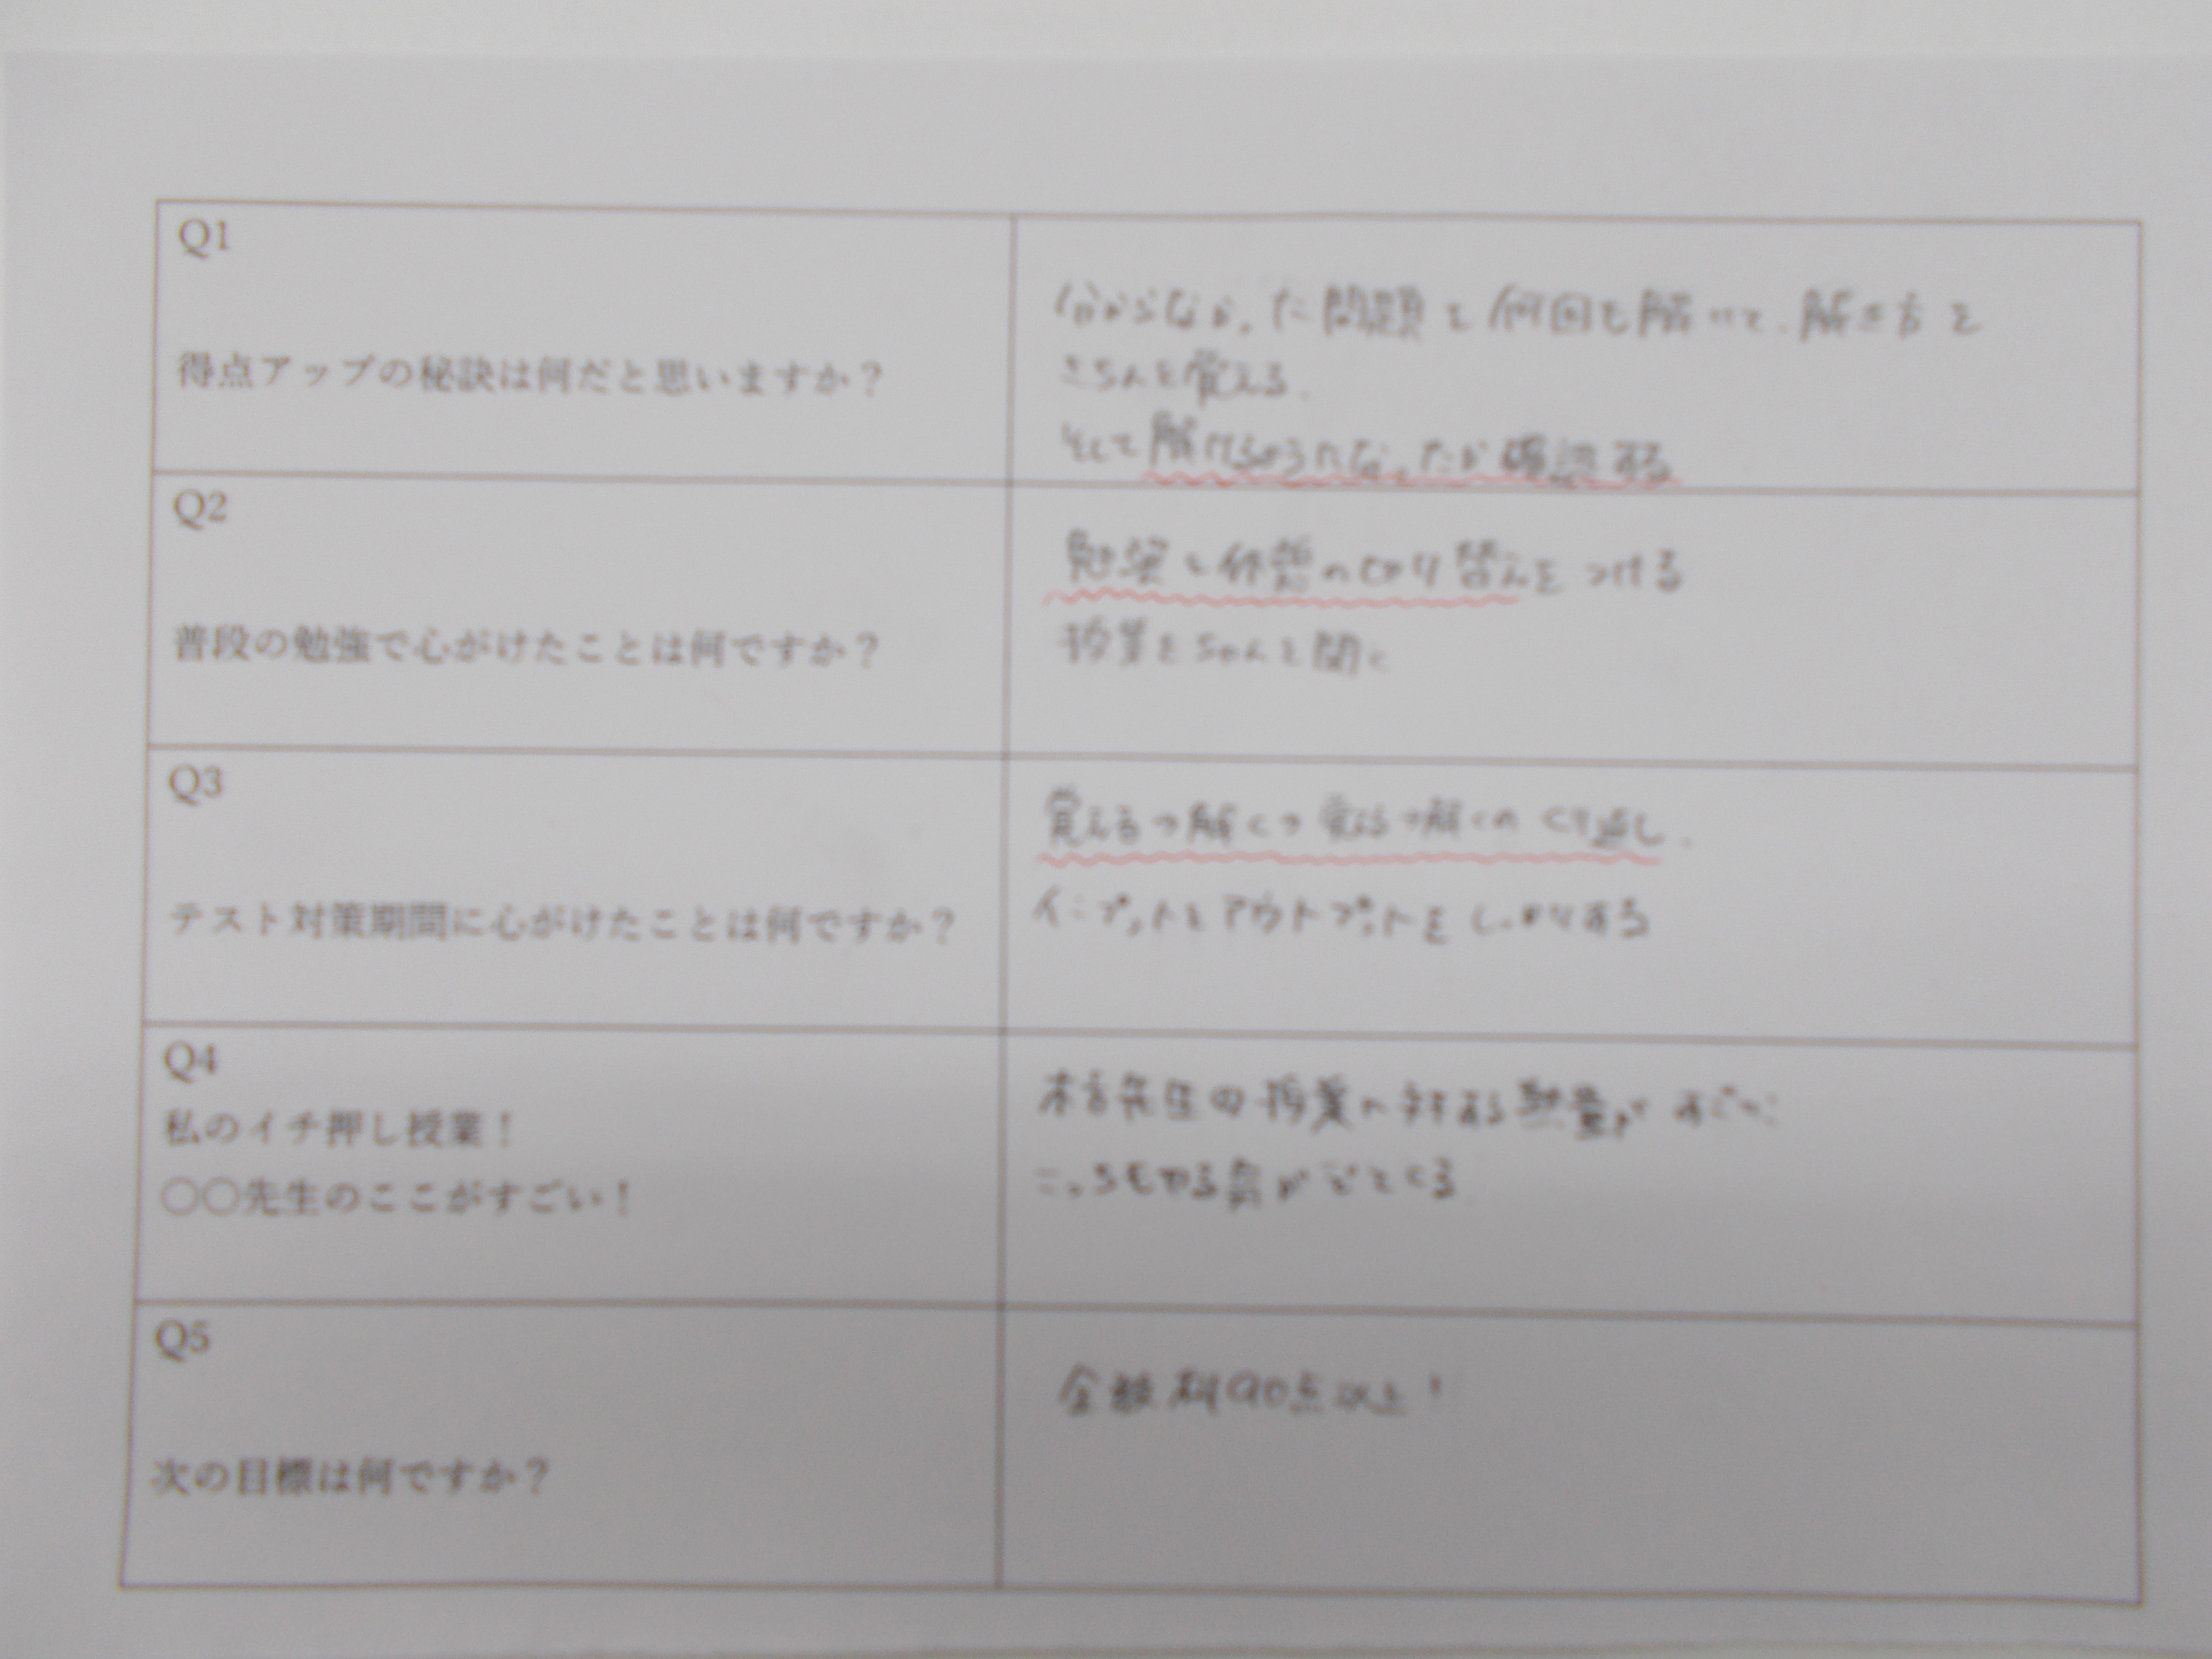 Q1
得点アップの秘訣は何だと思いますか？
分からなかった問題を何回も解いて、解き方を
きちんと覚える.
そして解けるようになったか確認する
Q2
普段の勉強で心がけたことは何ですか？
勉強と休憩の切り替えをつける
授業をちゃんと聞く
Q3
テスト対策期間に心がけたことは何ですか？
覚える→解く→覚える→解くのくり返し.
インプットとアウトプットをしっかりする
Q4
私のイチ押し授業！
〇〇先生のここがすごい！
先生の授業に対する熱量がすごい
こっちもやる気がでてくる
Q5
次の目標は何ですか？
全教科90点以上！